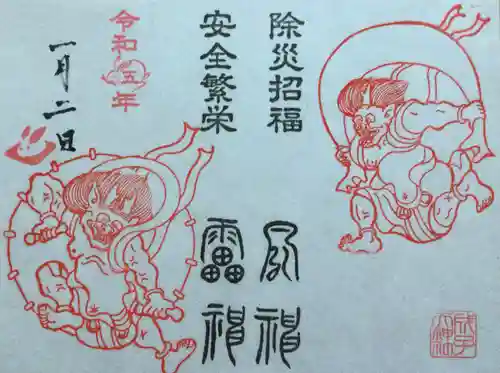 除災招福
安全繁栄
風神
雷神
令和五年
一月二日